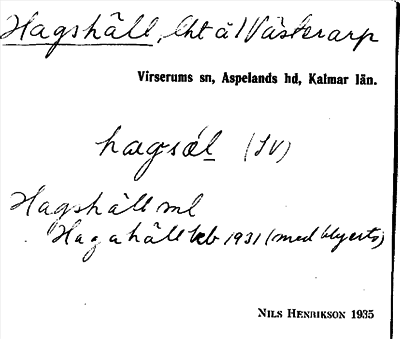 Hagshäll, lht å 1 Västerarp
Virserums sn, Aspelands hd, Kalmar län.
hagsäl (IV)
Hagshäll ml
Hagahäll kb 1931 (med blyerts)
NILS HENRIKSON 1935